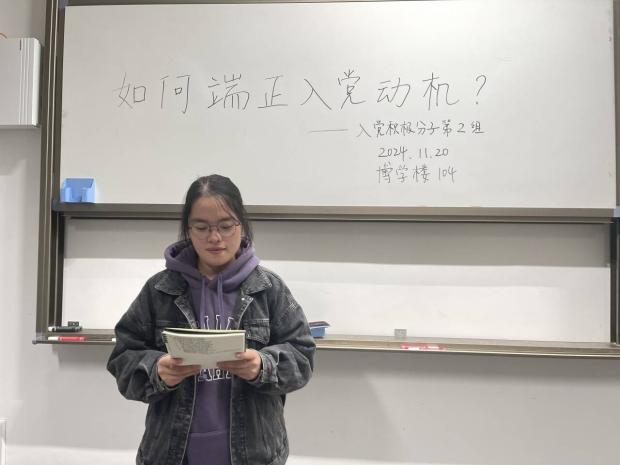 如何端正入党动机？
——入党积极分子第2组
2024.11.20
博学楼104